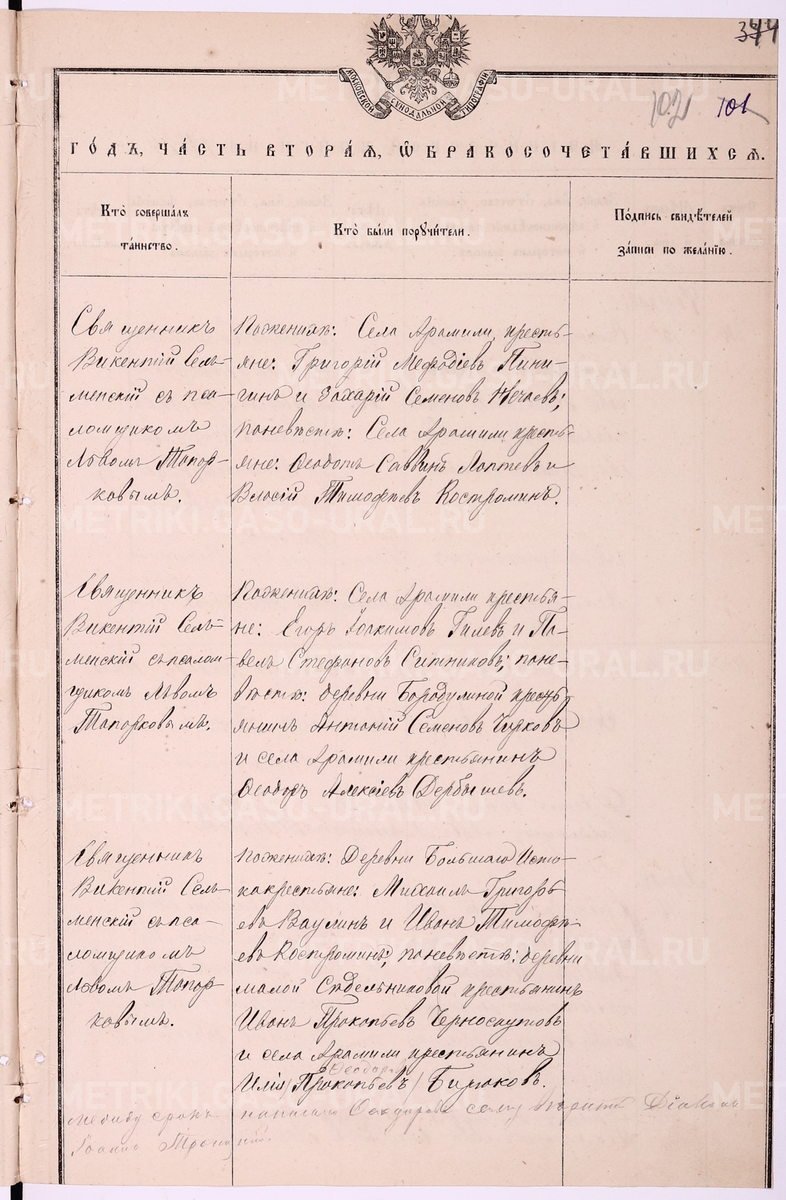 344
МОСКОВСКОЙ СУНОДАЛЬНОЙ ТИПОГРАФІИ
102 101
ГО́ДЪ, ЧА́СТЬ ВТОРА́Я, Ѡ БРАКОСОЧЕТА́ВШИХСЯ.
Кто̀ соверша́лъ
та́инство.
Кто̀ бы́ли поручи́тели.
По́дпись свидѣ́телей
за́писи по жела́нїю.
Священникъ
Викентій Сель-
менскій съ пса-
ломщикомъ
Львомъ Топор-
ковымъ.
Поженихѣ: Села Арамили, кресть-
яне: Григорій Мефодіевъ Пини-
гинъ и Захарій Семеновъ Нечаевъ;
поневѣстѣ: Села Арамили кресть-
яне: Ѳеодотъ Саввинъ Лаптевъ и
Власій Тимофѣевъ Костроминъ.
Священникъ
Викентій Сель-
менскій съ псалом-
щикомъ Львомъ
Топорковымъ.
Поженихѣ: Села Арамили крестья-
не: Егоръ Іоакимовъ Гилевъ и Па-
велъ Стефановъ Ситниковъ; поне-
вѣстѣ: деревни Бородулиной кресть-
янинъ Антоній Семеновъ Чирковъ
и села Арамили крестьянинъ
Ѳеодоръ Алексіевъ Дербышевъ.
Священникъ
Викентій Сель-
менскій съ пса-
ломщикомъ
Львомъ Топор-
ковымъ.
Поженихѣ: Деревни Большаго Исто-
ка крестьяне: Михаилъ Григорь-
евъ Ваулинъ и Иванъ Тимофѣ-
евъ Костроминъ; поневѣстѣ: деревни
малой Сѣдельниковой крестьянинъ
Иванъ Прокопьевъ Черноскутовъ
и села Арамили крестьянинъ
Ѳеодоръ
Илія (Прокопьевъ) Бирюковъ.
между срокъ написано Діаконъ
Іоаннъ
METRIKI.GASO-URAL.RU